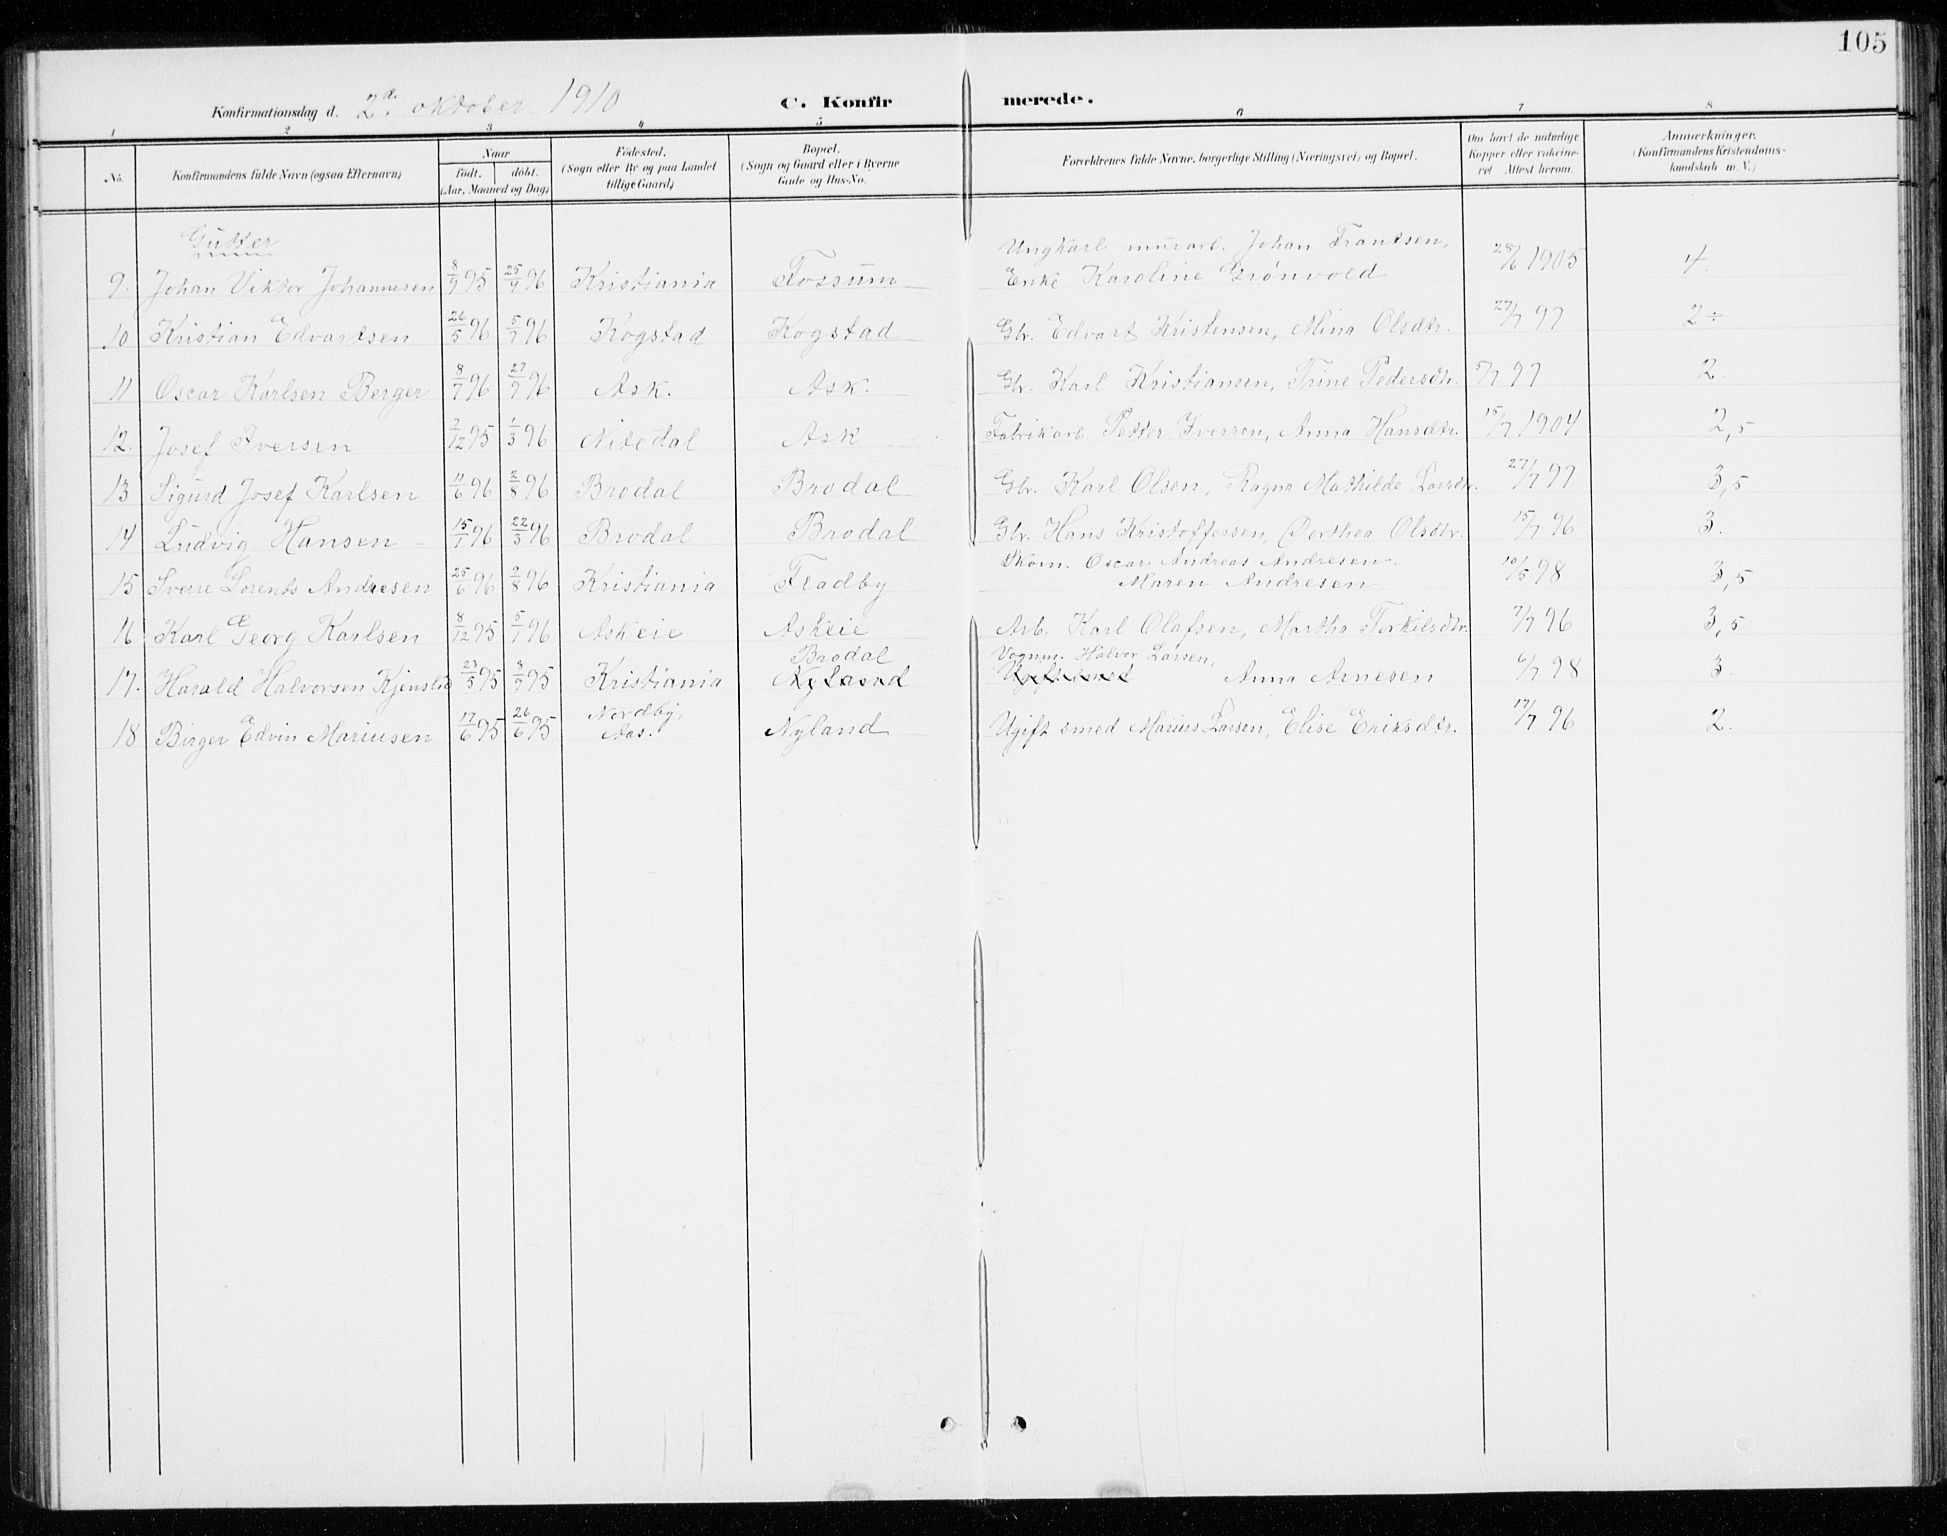 105
Konfirmationsdag d. 2d. oktober 1910
C. Konfirmerede.
1 2 3 4 5 6 7 8
No. Konfirmandens fulde Navn (ogsaa Efternavn) Naar født. døbt. (Aar, Maaned og Dag) Fødested. (Sogn eller By og paa Landet tillige Gaard) Bopæl. (Sogn og Gaard eller i Byerne Gade og Hus-No. Forældrenes fulde Navne, borgerlige Stilling (Næringsvei) og Bopæl. Om havt de naturlige Kopper eller vakcineret Attest herom. Anmærkninger. (Konfirmandens Kristendomskundskab m. V.)
Gutter
Ungkarl murarb. Johan Frantsen,
9. Johan Viktor Johannesen 8/9 95 25/4 96 Kristiania Fossum Enke Karoline Grønvold 28/6 1905 4.
10 Kristian Edvartsen 26/5 96 5/7 96 Kogstad Kogstad Gbr. Edvart Kristensen, Mina Olsdtr. 27/7 97 2÷
11 Oscar Karlsen Berger 8/7 96 27/9 96 Ask. Ask. Gbr. Karl Kristiansen, Trine Pedersdtr. 5/7 97 2.
12. Josef Iversen 2/12 95 1/3 96 Nitedal Ask Fabrikarb. Petter Iversen, Anna Hansdtr. 15/7 1904 2,5
13 Sigurd Josef Karlsen 11/6 96 2/8 96 Brodal Brodal Gbr. Karl Olsen, Ragna Mathilde Larsdtr. 27/7 97 3,5
14 Ludvig Hansen 15/1 96 22/3 96 Brodal Brodal Gbr. Hans Kristoffersen, Dorthea Olsdtr. 15/7 96 3.
Skom. Oscar Andreas Andresen.
15 Sverre Lorents Andresen 25/6 96 2/8 96 Kristiania Fladby Maren Andresen 10/5 98 3,5
16 Karl Georg Karlsen 8/12 95 5/1 96 Askeie Askeie Arb. Karl Olafsen, Martha Torkilsdtr. 7/7 96 3,5
Brodal Vognm. Halvor Larsen,
17. Harald Halvorsen Kjenstad 23/5 95 8/9 95 Kristiania Nyland Ugift smed Anna Arnesen 6/7 98 3.
Nordby,
18 Birger Edvin Mariusen 17/6 95 26/6 95 Aas. Nyland Ugift smed Marius Larsen, Elise Eriksdtr. 17/7 96 2.